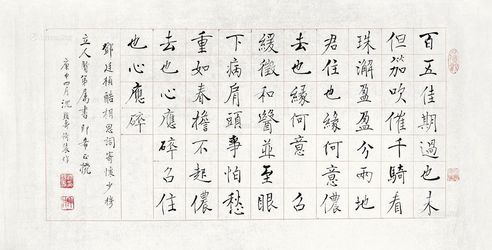 百五佳期過也未
但笳吹催千騎看
珠澥盈盈分兩地
君住也緣何意儂
去也緣何意
緩徵和醫並至眼
下病肩頭事怕愁
重如春擔不起儂
去也心應碎召住
也心應碎
鄧廷楨酷相思詞寄懷少穆
立人醫弟屬書即希正
庚申四月沈